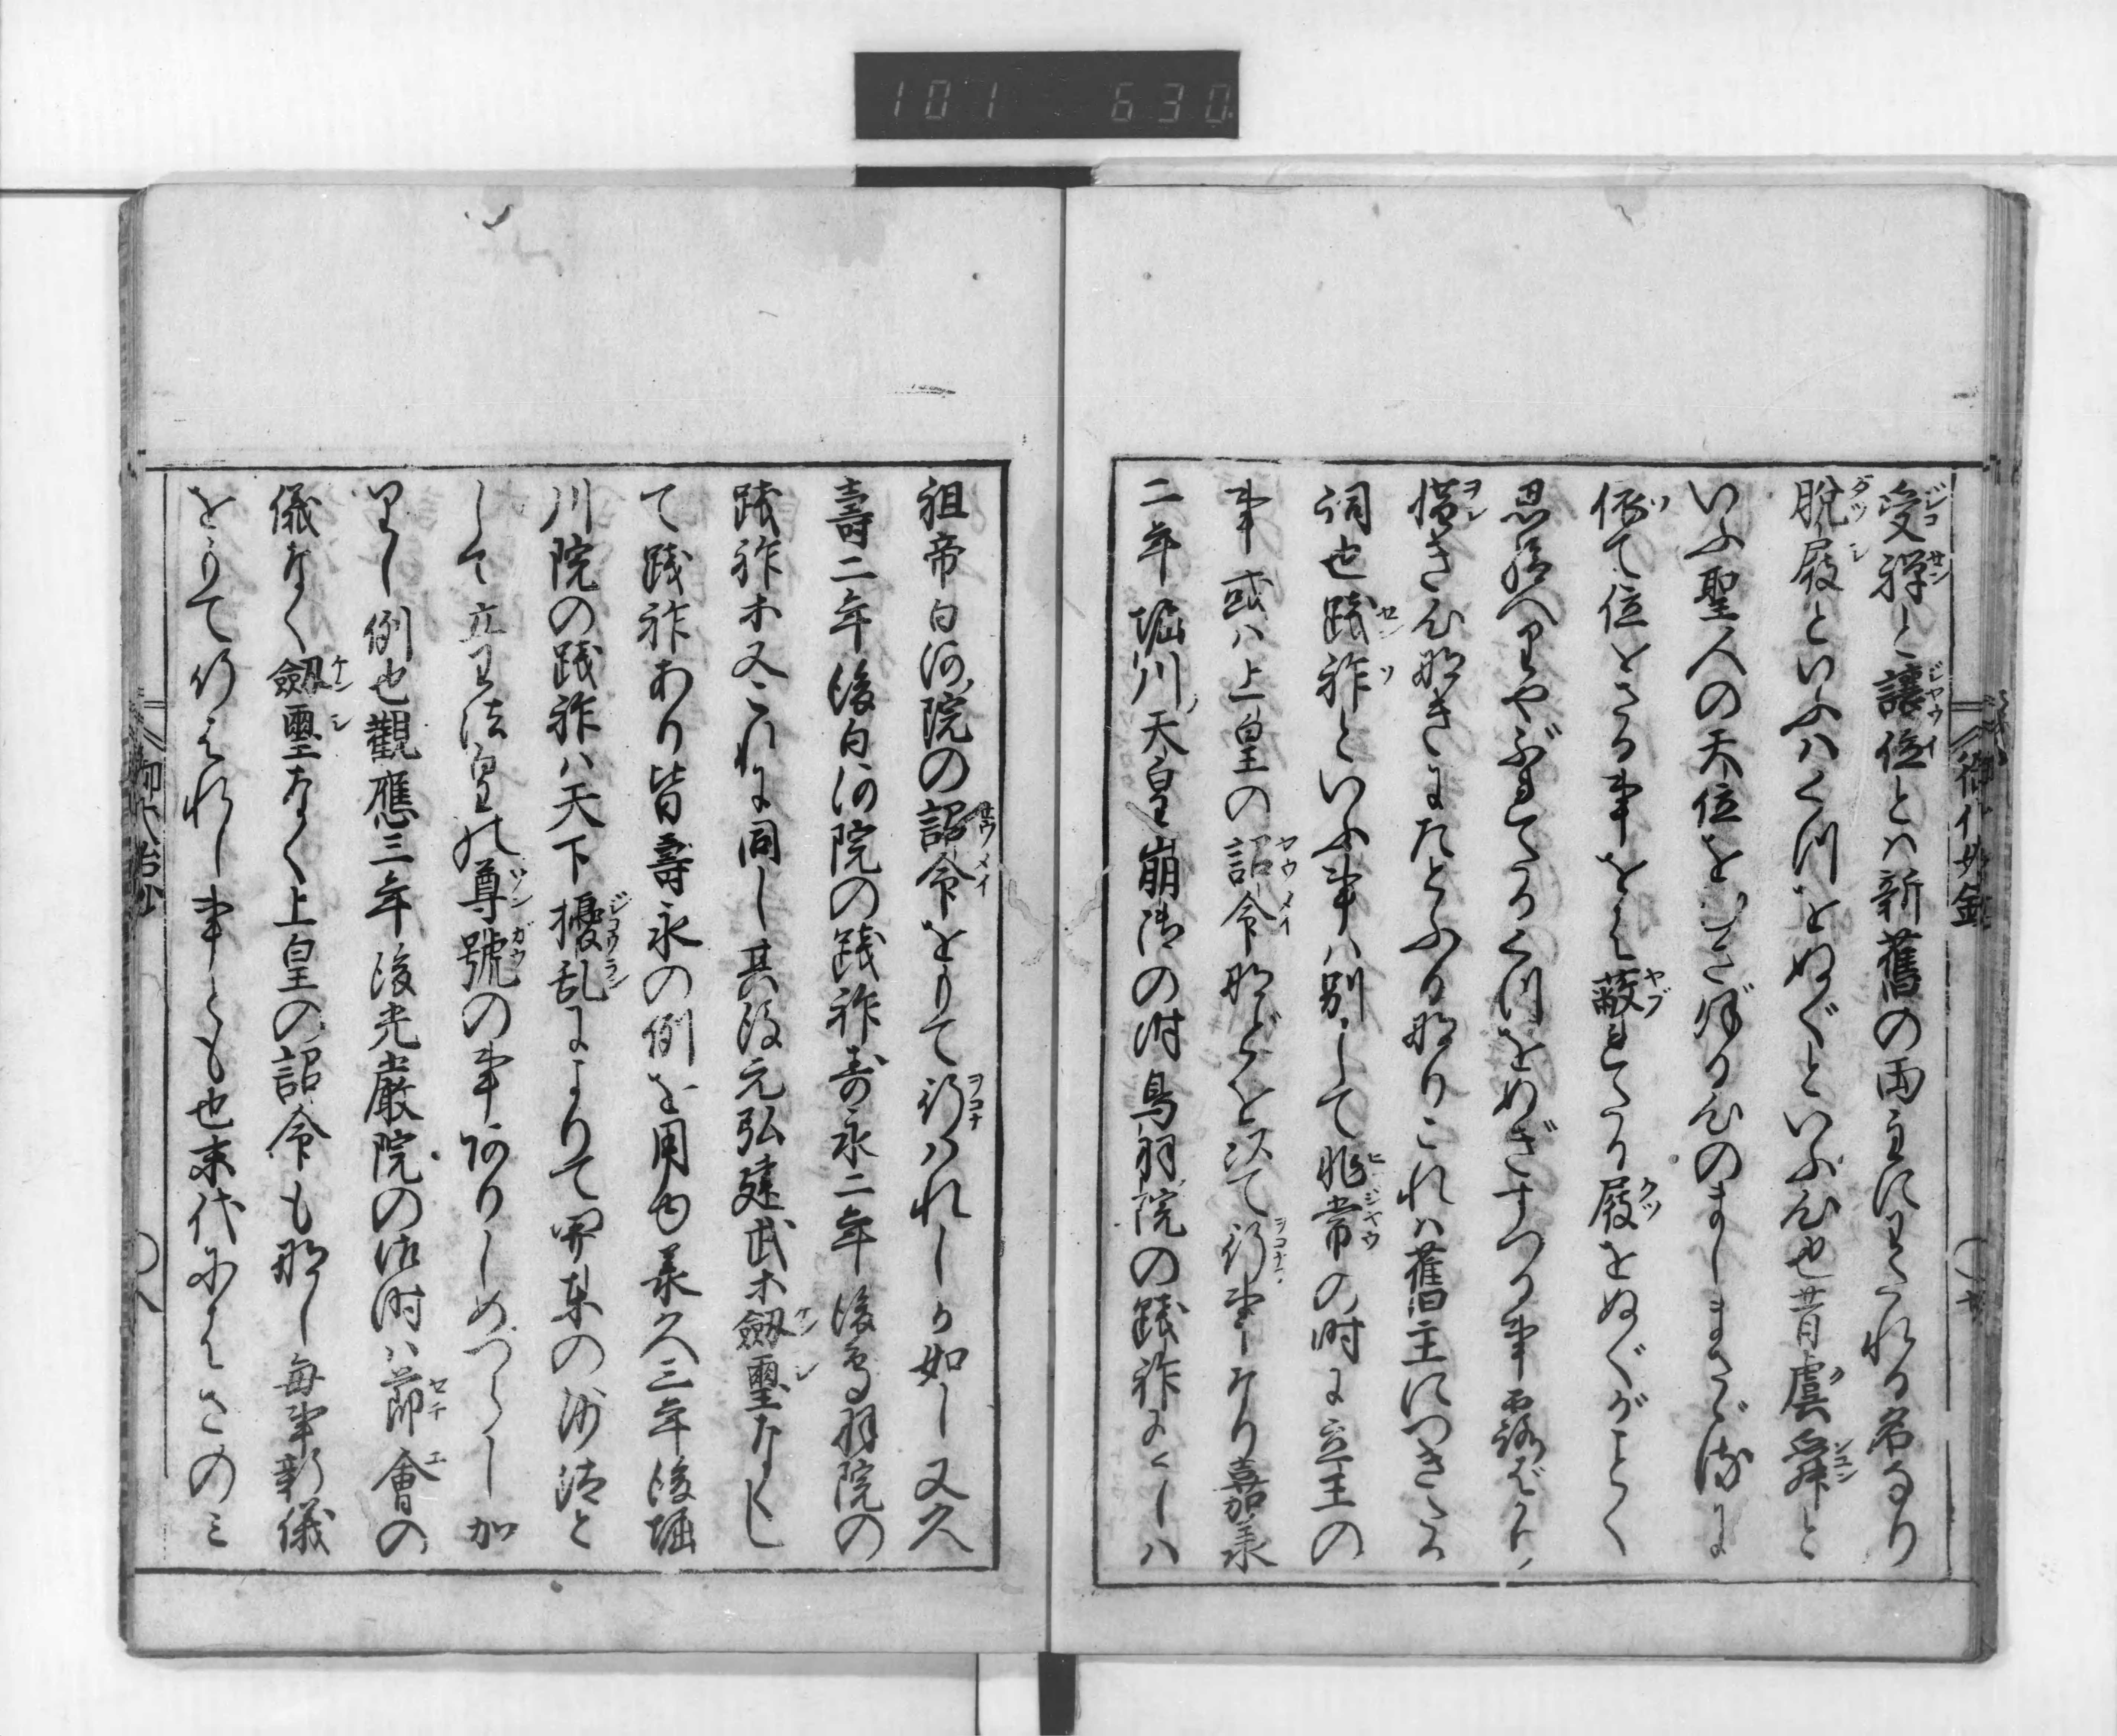 101 630
受禅と讓位とハ新舊の両主にわたれる名なり
脱屐といふハくつをぬぐといふ心也昔虞舜と
いふ聖人の天位をむさぼる心のましまさゞるに
依て位をさる事をは蔽れたる屐をぬぐがことく
思給へりやぶれたるくつをぬぎすつる事露ばかり
惜き心なきにたとふるなりこれハ舊主につきたる
詞也践祚といふ事ハ別して非常の時に立王の
事或ハ上皇の詔令などを以て行事なり嘉承
二年堀川天皇崩御の時鳥羽院の践祚にをしハ
祖帝白河院の詔令をもて行ハれしか如し又久
壽二年後白河院の践祚寿永二年後鳥羽院の
践祚木又これに同し其後元弘建武木劔璽なくし
て践祚あり皆壽永の例を用ゆ承久三年後堀
川院の践祚ハ天下擾乱によりて関東の沙汰と
して立王法皇の尊號の事ありしめつらし加
りし例也觀應三年後光嚴院の御時ハ節會の
儀なく劔璽なく上皇の詔令も那し毎事新儀
をもて行はれし事とも也末代にはさのミ